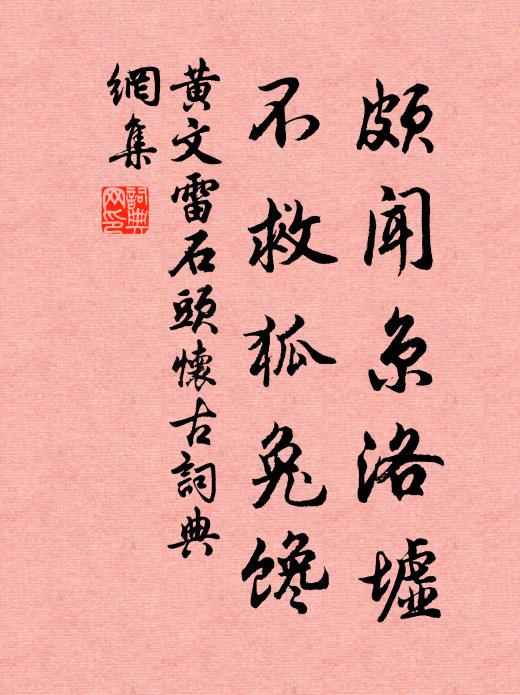 頗聞京洛墟
不救狐兔馋
黃文雷石頭懷古詞典
網集
詞典网印